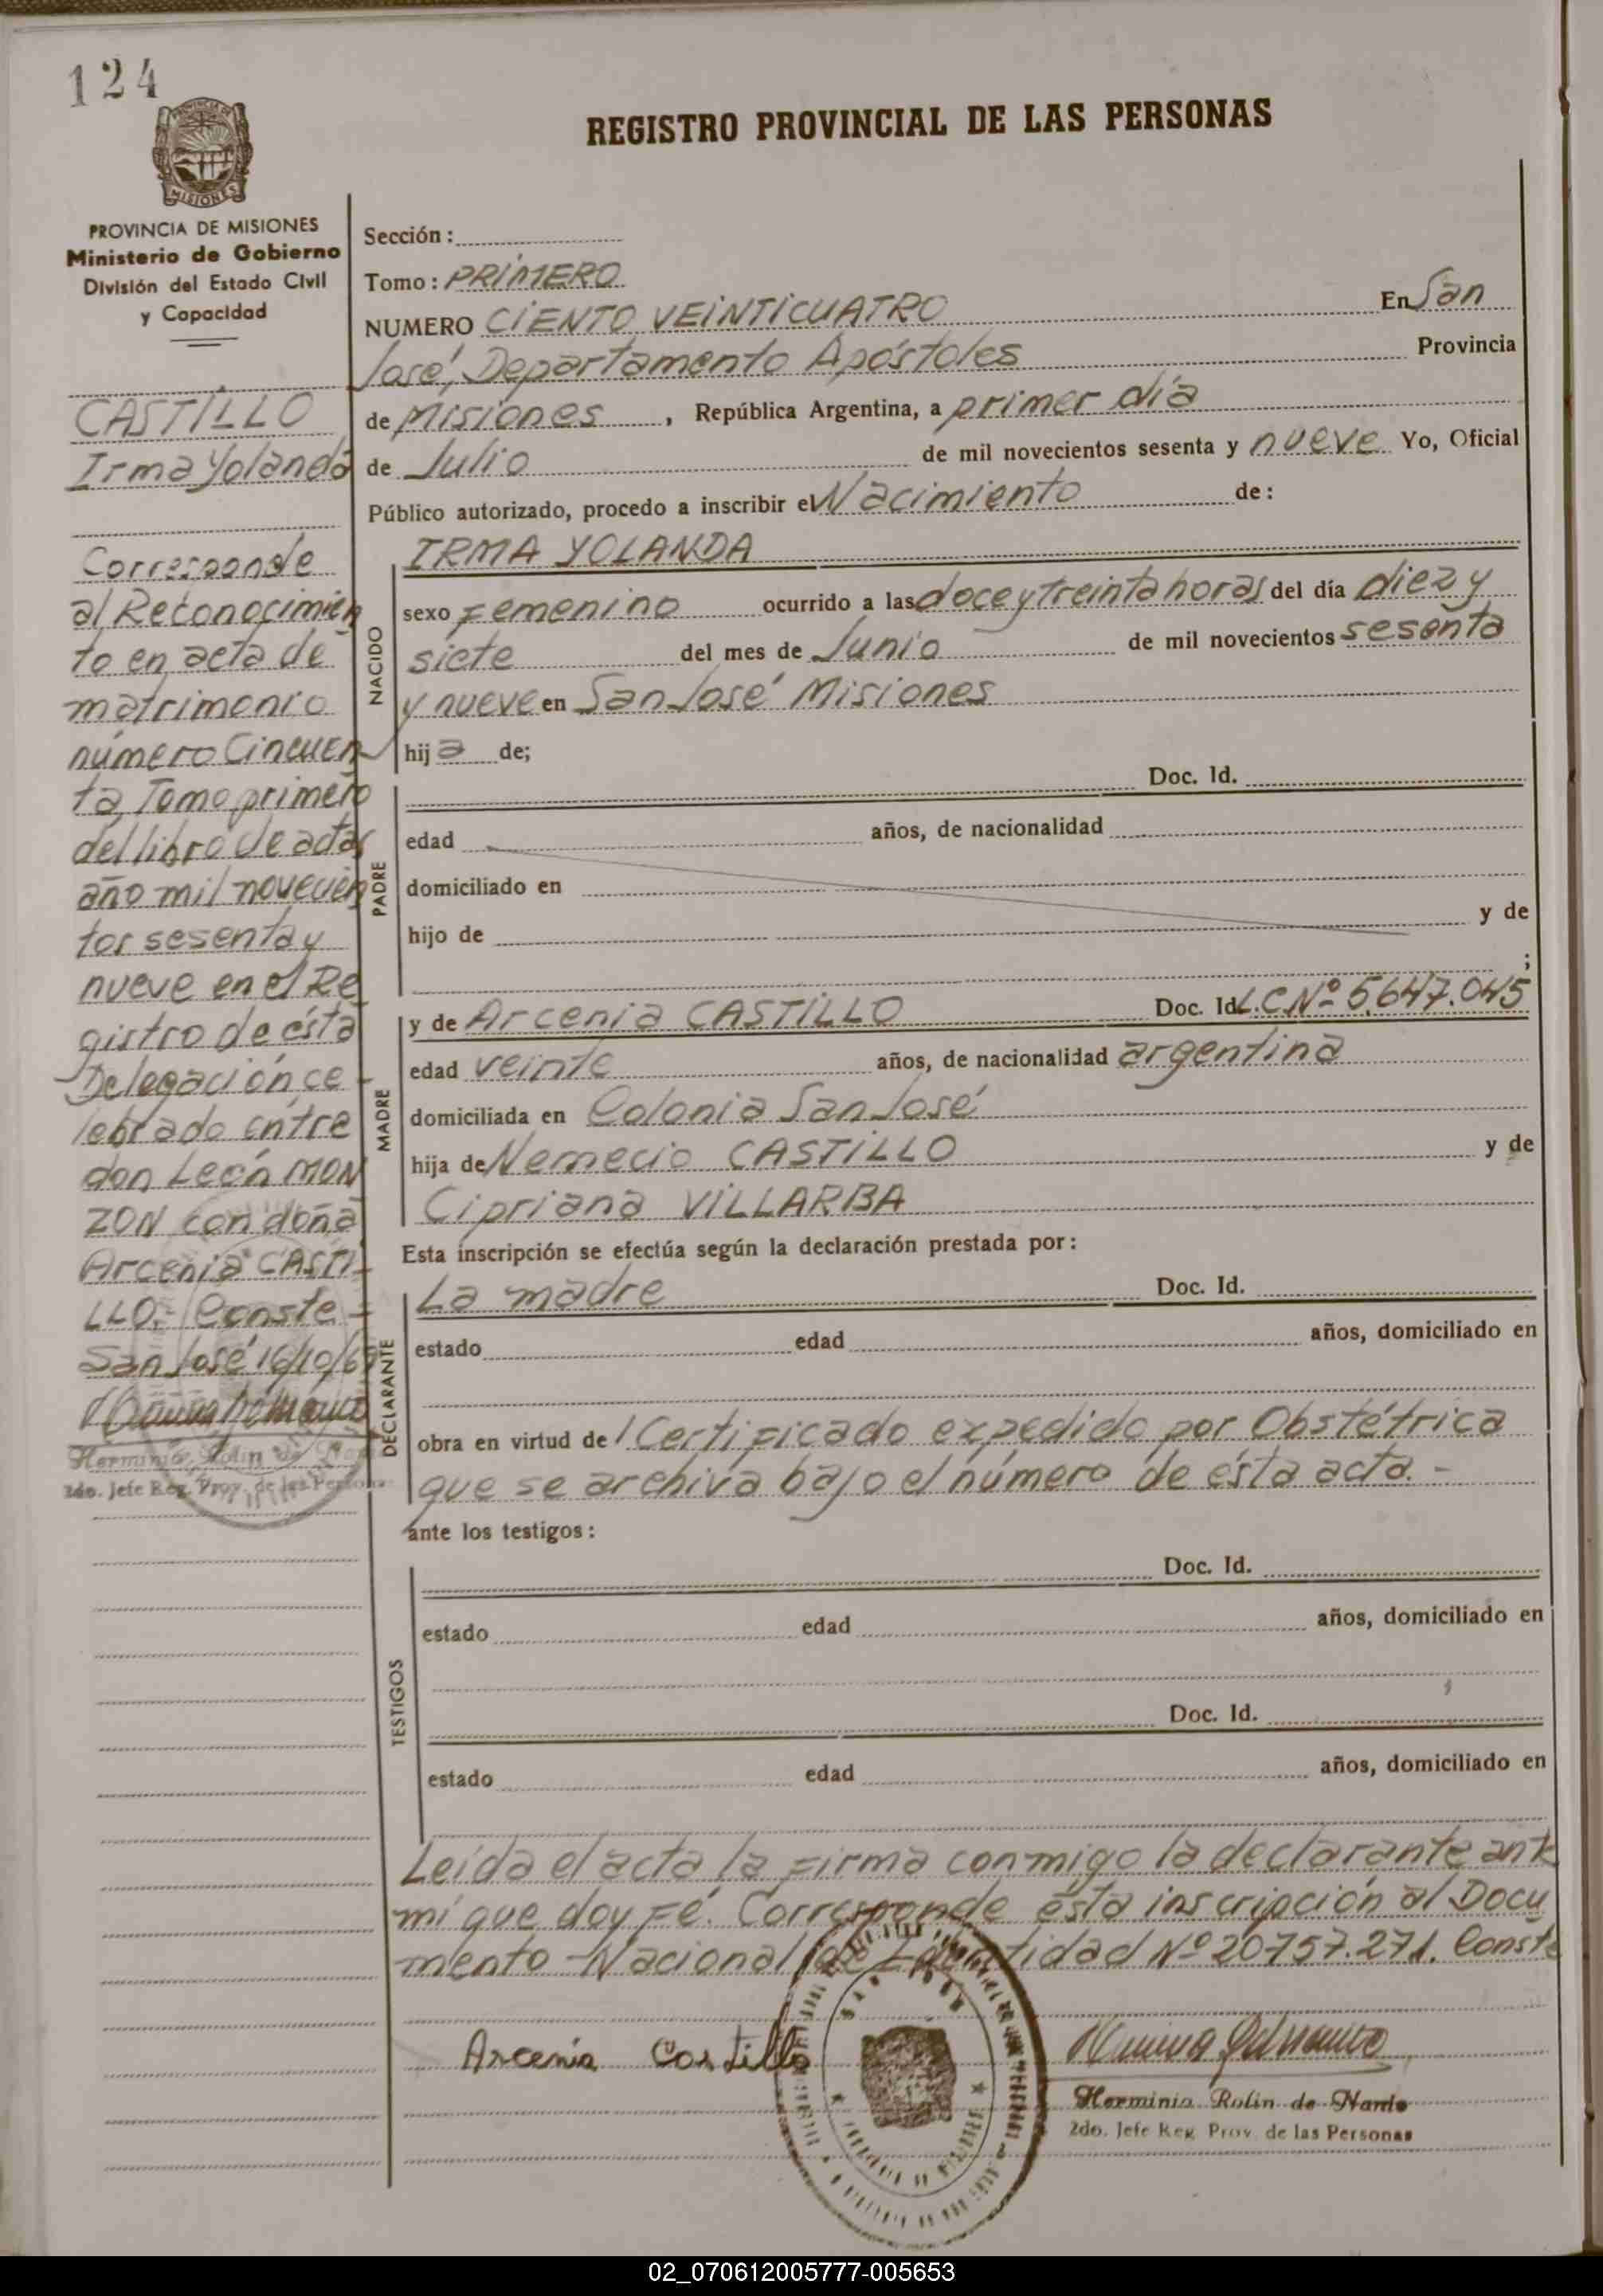 124
PROVINCIA DE MISIONES
Ministerio de Gobierno
División del Estado Civil
y Capacidad
CASTILLO
Irma Yolanda
Corresponde
al Reconocimien
to en acta de
matrimonio
número Cincuen
ta, Tomo primero
del libro de actas
año mil novecien
tos sesenta y
nueve en el Re
gistro de ésta
Delegación ce
lebrado entre
don León MON
ZON con doña
Arcenia CASTI
LLO.- Conste -
San José 16/10/69
Herminia Rolin de
2do. Jefe Reg. Prov. de las Personas
REGISTRO PROVINCIAL DE LAS PERSONAS
Sección :
Tomo : PRIMERO
NUMERO CIENTO VEINTICUATRO En San
José, Departamento Apóstoles Provincia
de Misiones , República Argentina, a primer día
de Julio de mil novecientos sesenta y nueve Yo, Oficial
Público autorizado, procedo a inscribir el Nacimiento de :
NACIDO
IRMA YOLANDA
sexo Femenino ocurrido a las doce y treinta horas del día diez y
siete del mes de Junio de mil novecientos sesenta
y nueve en San José Misiones
hij a de;
PADRE
Doc. Id.
edad años, de nacionalidad
domiciliado en
hijo de y de
;
MADRE
y de Arcenia CASTILLO Doc. Id. L.C.Nº 5.647.045
edad veinte años, de nacionalidad argentina
domiciliada en Colonia San José
hija de Nemecio CASTILLO y de
Cipriana VILLARBA
Esta inscripción se efectúa según la declaración prestada por :
DECLARANTE
La madre Doc. Id.
estado edad años, domiciliado en
obra en virtud de l Certificado expedido por Obstétrica
que se archiva bajo el número de ésta acta. -
ante los testigos :
TESTIGOS
Doc. Id.
estado edad años, domiciliado en
Doc. Id.
estado edad años, domiciliado en
Leída el acta la firma conmigo la declarante ante
mí que doy fé. Corresponde ésta inscripción al Docu
mento Nacional de Identidad Nº 20.757.271. Conste
Arcenia Castillo
Herminia Rolin de Nardo
2do. Jefe Reg. Prov. de las Personas
02_070612005777-005653